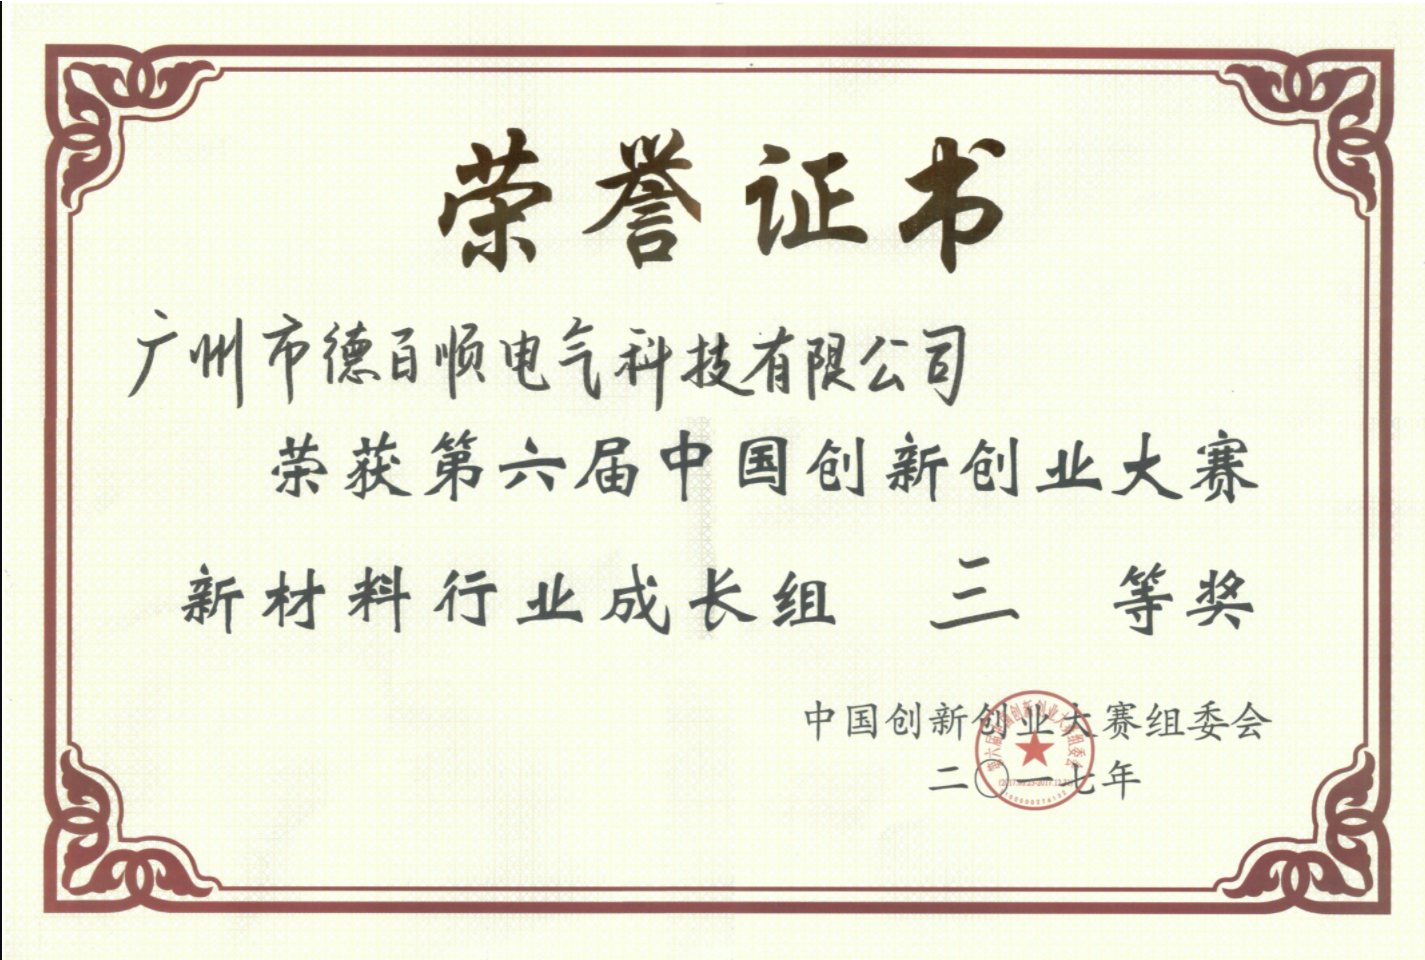 荣誉证书
广州市德百顺电气科技有限公司
荣获第六届中国创新创业大赛
新材料行业成长组 三 等奖
中国创新创业大赛组委会
二〇一七年
第六届中国创新创业大赛组委会